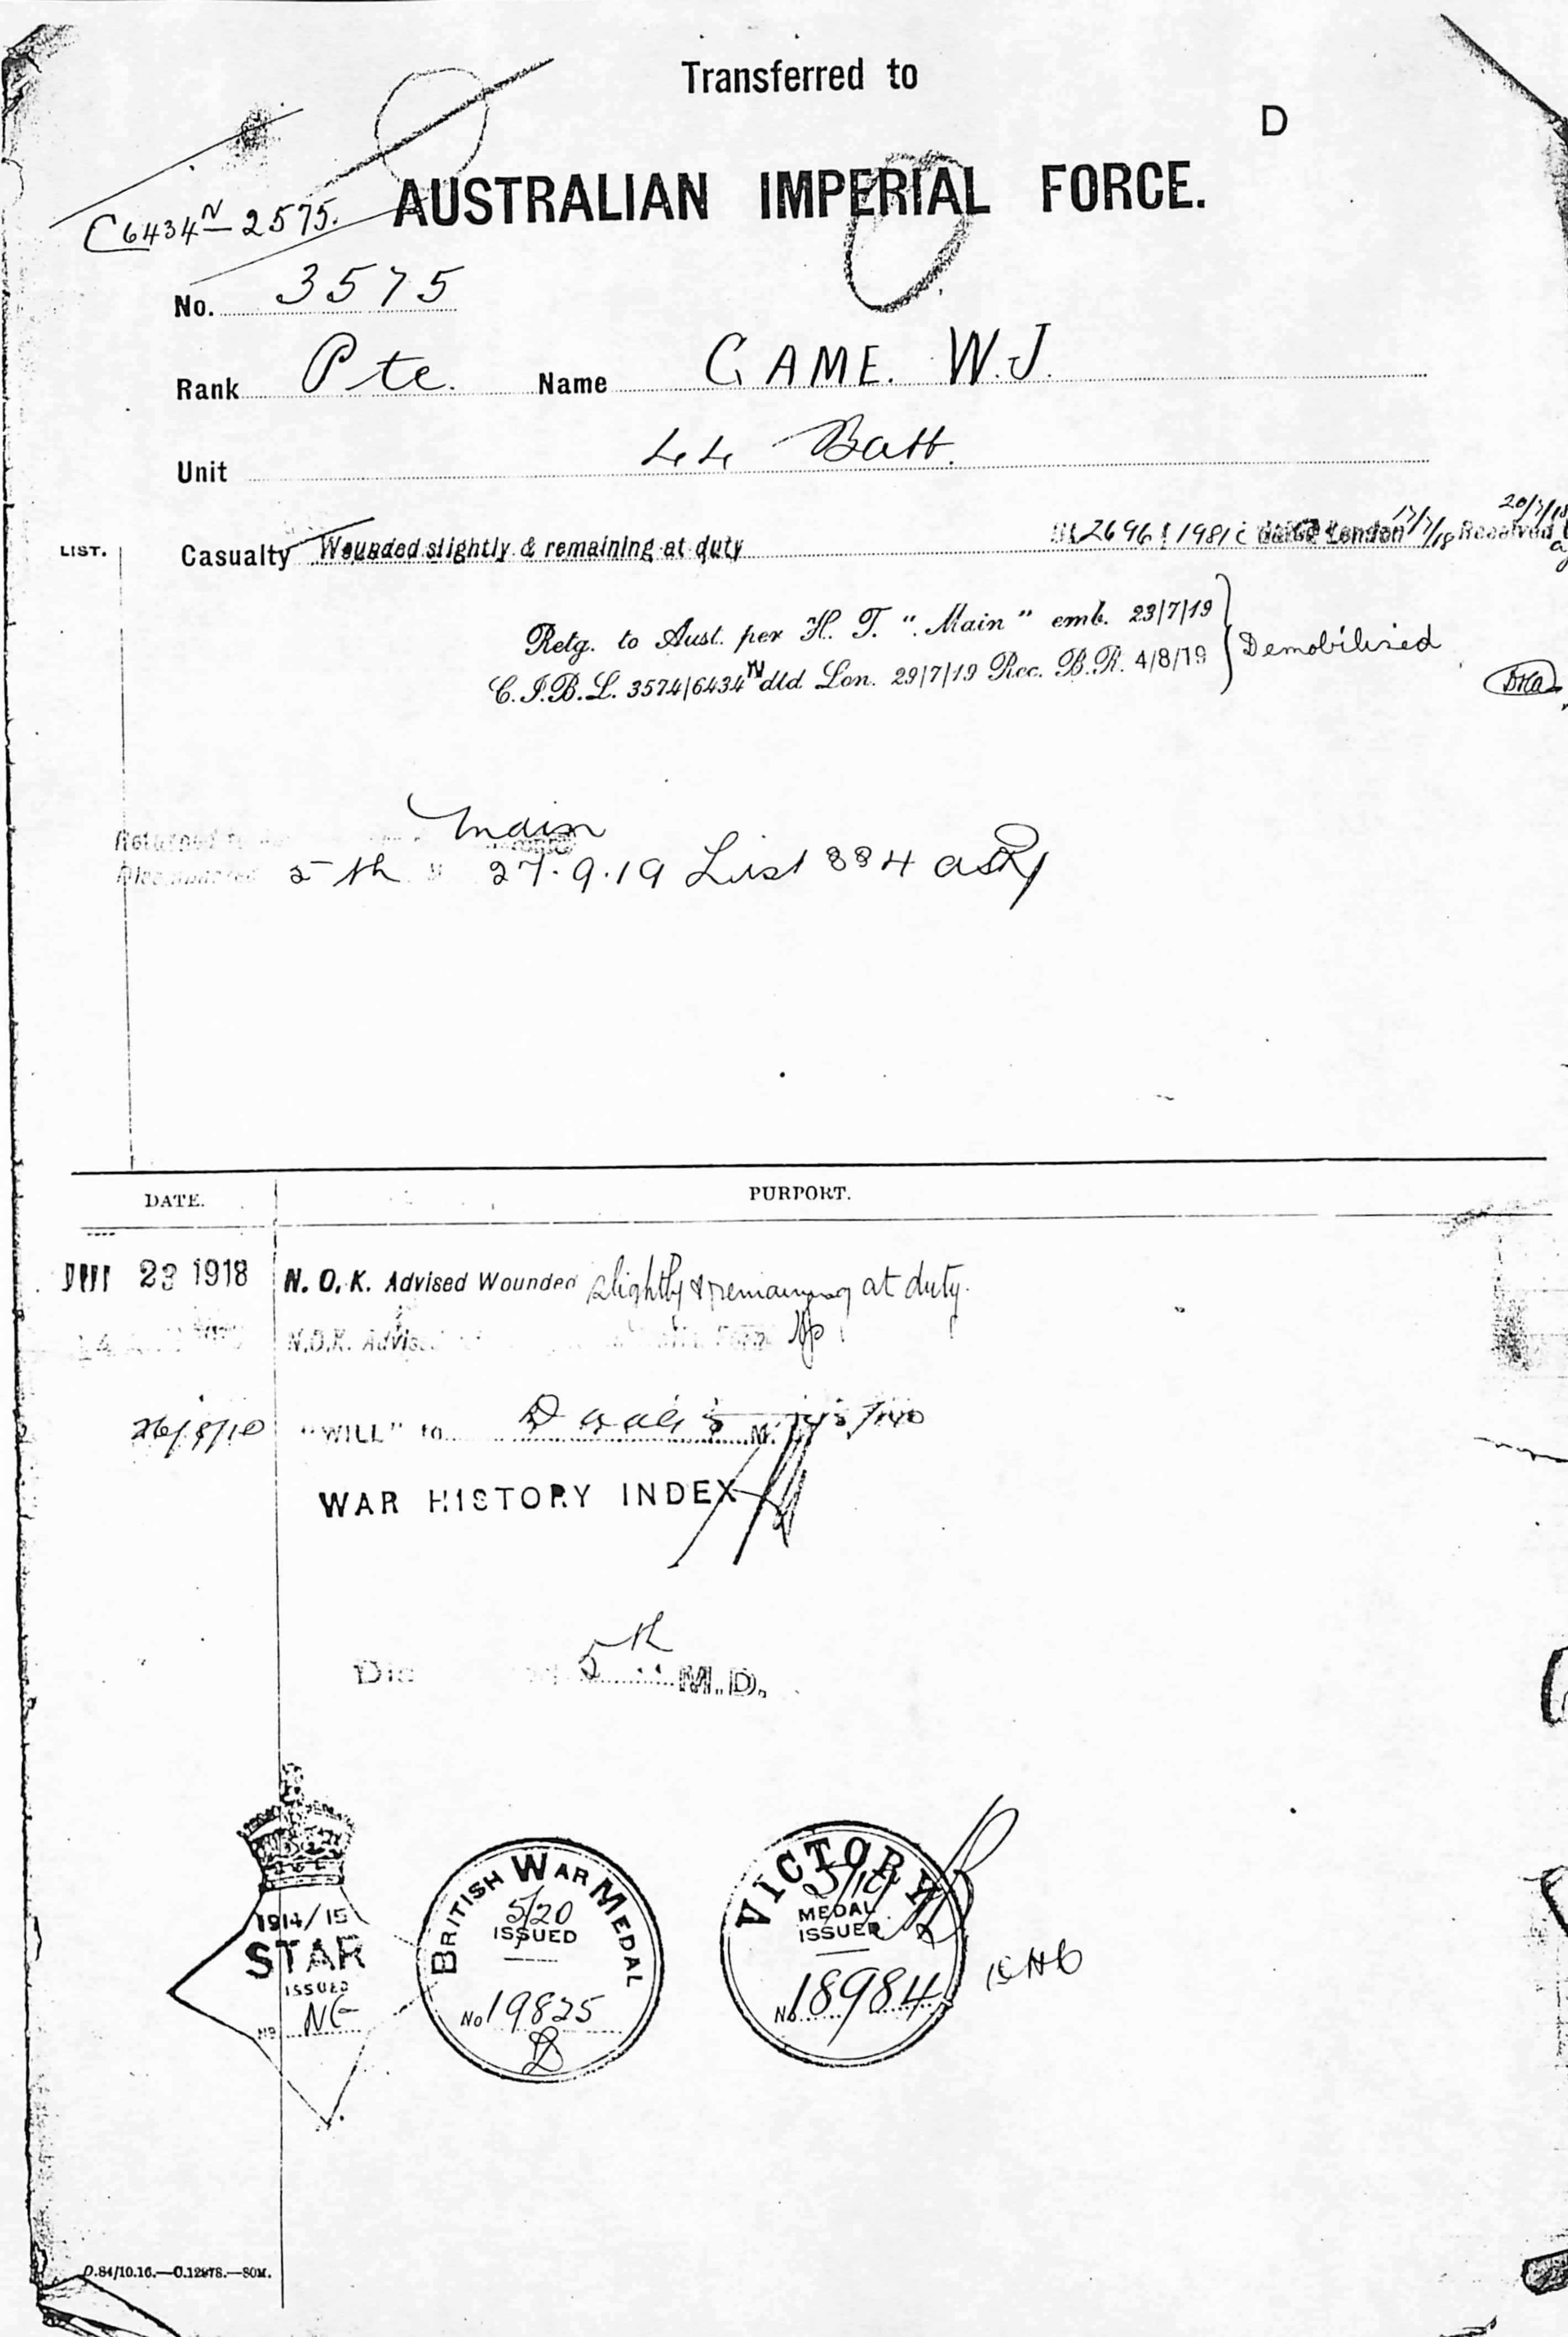 Transferred to
D
AUSTRALIAN IMPERIAL FORCE.
C6434N 2575.
No. 3575
Rank Pte. Name GAME. W.J.
Unit 44 Batt.
LIST.
Casualty Wounded slightly & remaining at duty 2696 1981 London 17/7/18 Received
20/7/18
Retg. to Aust. per H. T. "Main" emb. 23/7/19
Demobilised
C.I.B.L. 3574/6434 N dld Lon. 29/7/19 Rec. B.R. 4/8/19
Main
Returned
5th 27.9.19 List 884
DATE. PURPORT.
23 1918 N. O. K. Advised Wounded slightly & remaining at duty.
N.O.K. Advised
"WILL" to M.
WAR HISTORY INDEX
5th M.D.
1914/15
STAR
ISSUED
No.
BRITISH WAR MEDAL
5/20
ISSUED
No 19825
VICTORY
MEDAL
ISSUED
No. 18984
D.84/10.16.—C.12978.—80M.